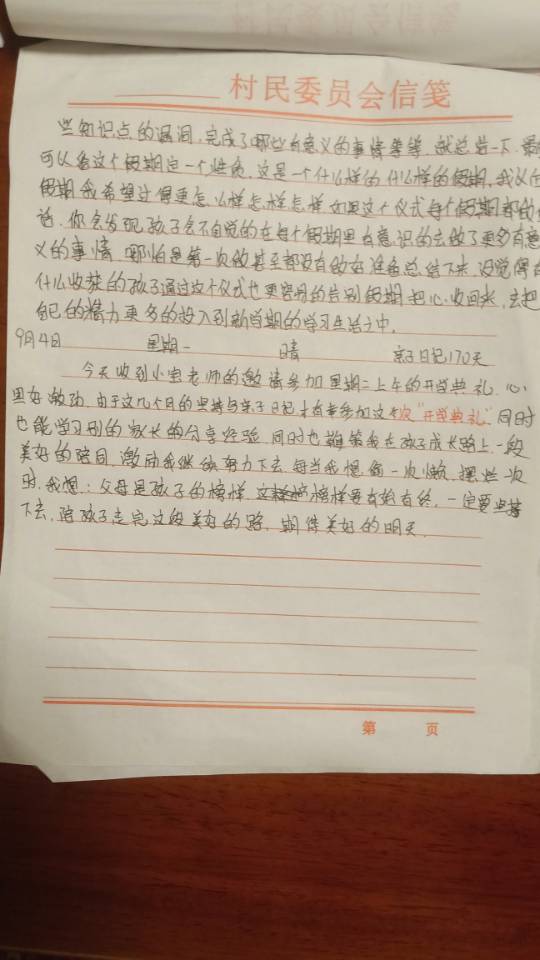 村民委员会信笺
些知识点的漏洞,完成了哪些有意义的事情等等,就总结一下,最
可以给这个假期定一个性质,这是一个什么样的什么样的假期,我以
假期我希望过得更怎么样怎样怎样 如果这个仪式每个假期都
话,你会发现孩子会不自觉的在每个假期里有意识的去做了更多有意
义的事情,哪怕是第一次做甚至都没有做好准备总结下来,没觉得有
什么收获的孩子通过这个仪式也更容易的告别假期 把心收回来,去把
自己的精力更多的投入到新学期的学习生活之中。
9月4日 星期一 晴 亲子日记170天
今天收到小宝老师的邀请参加星期二上午的开学典礼,心
里好激动,由于这几个月的坚持写亲子日记才有幸参加这次"开学典礼"同时
也能学习别的家长的分享经验,同时也是我在孩子成长路上一段
美好的陪同,激励我继续努力下去,每当我想偷一次懒,摆烂一次
时,我想:父母是孩子的榜样,榜样要有始有终,一定要坚持
下去,陪孩子走完这段美好的路,期待美好的明天。
第 页